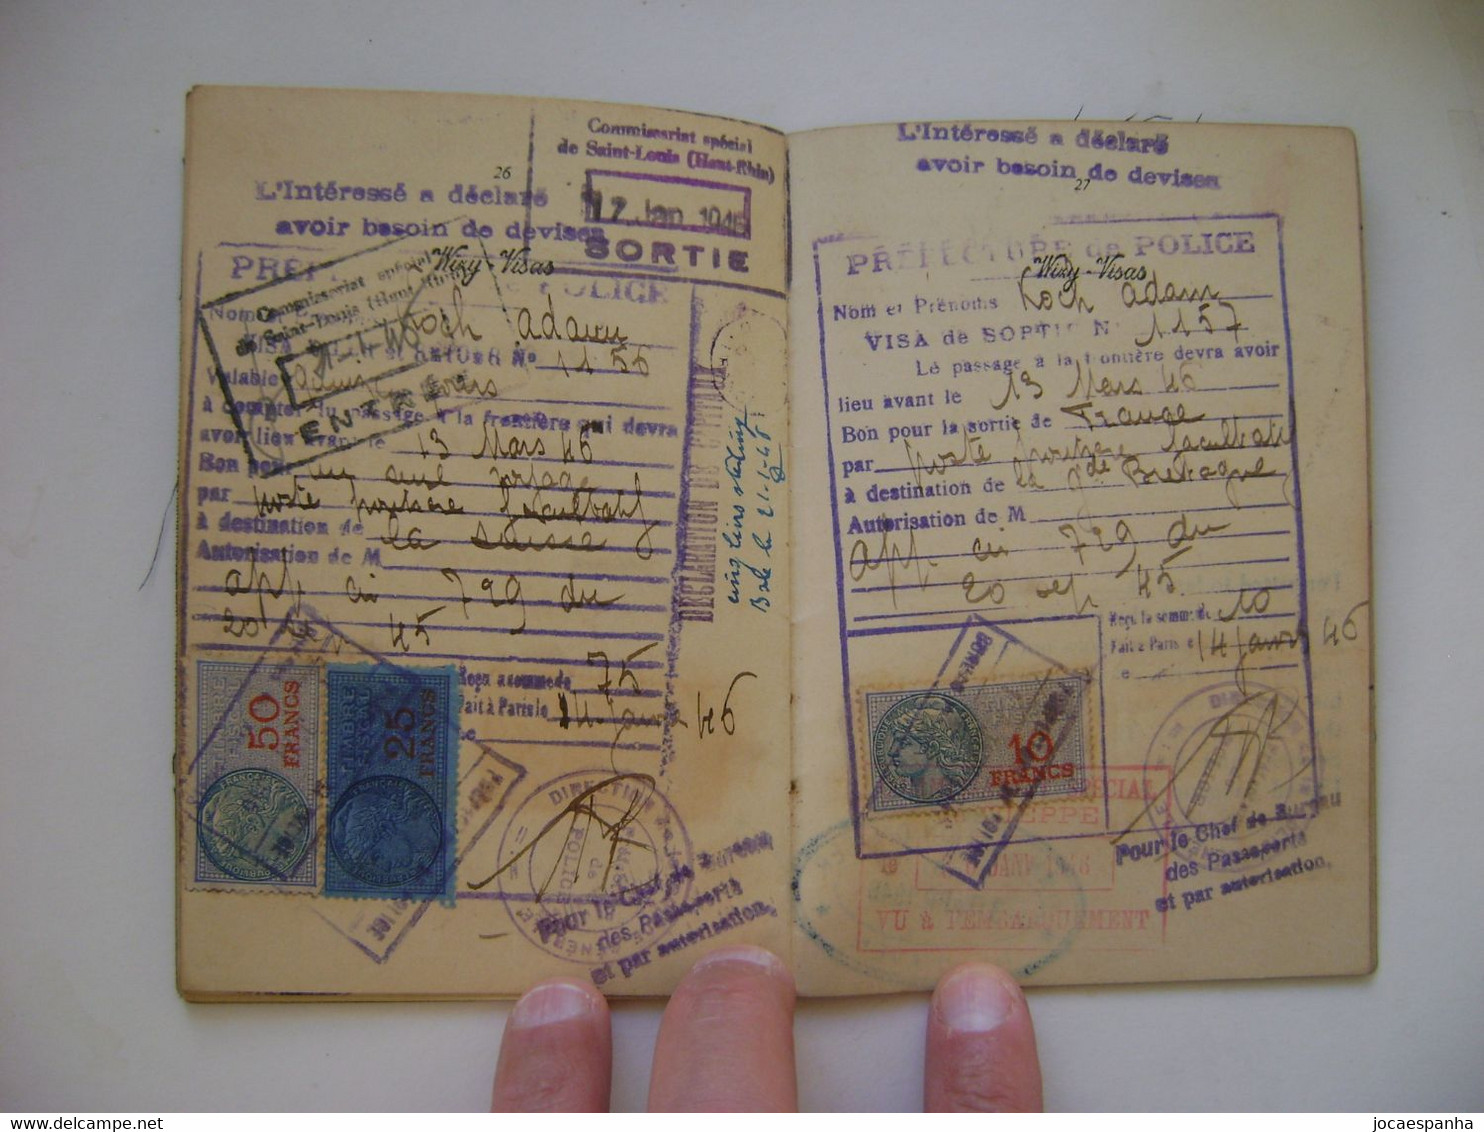 26
L'Intéressé a déclaré
avoir besoin de devises
Commissariat spécial
de Saint-Louis (Haut-Rhin)
17 Jan 1946
SORTIE
Wizy - Visas
Commissariat spécial
de Saint-Louis (Haut-Rhin)
ENTRÉE
POLICE
Koch Adam
No 1156
Valable
à compter du passage à la frontière qui devra
avoir lieu avant le 13 Mars 46
Bon pour un seul voyage
par poste frontière facultatif
à destination de la Suisse
Autorisation de M
app ci 729 du
45
Reçu la somme de 75
Fait à Paris le 14 Janv 46
le
DÉCLARATION DE CAPITAUX
cinq livres sterling
Bale le 21-1-46
50
FRANCS
TIMBRE
FISCAL
25
FRANCS
TIMBRE
FISCAL
DIRECTION
POLICE
Pour le Chef de Bureau
des Passeports
et par autorisation,
27
L'Intéressé a déclaré
avoir besoin de devises
PRÉFECTURE de POLICE
Wizy - Visas
Nom et Prénoms Koch Adam
VISA de SORTIE No 1157
Le passage à la frontière devra avoir
lieu avant le 13 Mars 46
Bon pour la sortie de France
par poste frontière facultatif
à destination de la Gde Bretagne
Autorisation de M
app ci 729 du
20 sep 45
Reçu la somme de 10
Fait à Paris le 14 Janv 46
le
10
FRANCS
SPÉCIAL
DIEPPE
JANV 1946
VU À L'EMBARQUEMENT
Pour le Chef de Bureau
des Passeports
et par autorisation.
delcampe.net
jocaespanha